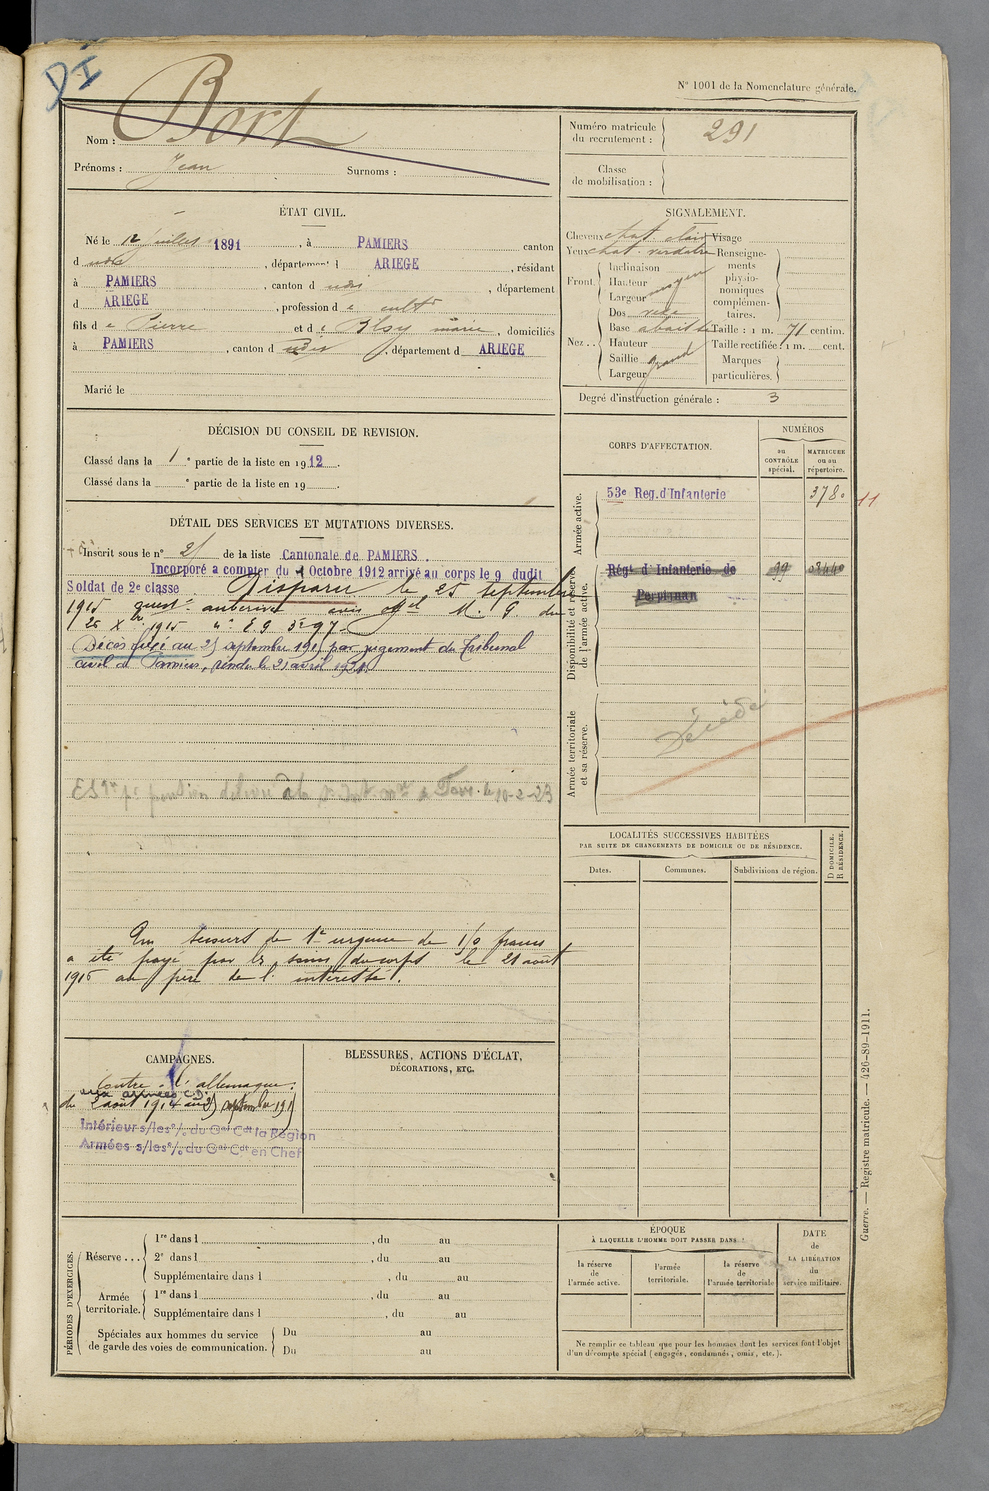 DI
N° 1001 de la Nomenclature générale.
Nom : Bort
Prénoms : Jean Surnoms :
Numéro matricule du recrutement : 291
Classe de mobilisation :
ÉTAT CIVIL.
Né le 12 juillet 1891, à PAMIERS canton
d udit, département d ARIEGE, résidant
à PAMIERS, canton d udit, département
d ARIEGE, profession de cultr
fils de Pierre et de marie, domiciliés
à PAMIERS, canton d udit, département d ARIEGE
Marié le
SIGNALEMENT.
Cheveux chat. clair Visage
Yeux chat. verdâtre Renseignements physionomiques complémentaires.
Front.
Inclinaison
Hauteur
Largeur moyen
Nez..
Dos
Base abaissée Taille : 1 m. 71 centim.
Hauteur Taille rectifiée : 1 m. cent.
Saillie Marques particulières.
Largeur grand
Degré d'instruction générale : 3
DÉCISION DU CONSEIL DE REVISION.
Classé dans la 1e partie de la liste en 1912.
Classé dans la e partie de la liste en 19
CORPS D'AFFECTATION.
NUMÉROS
au CONTRÔLE spécial.
MATRICULE ou au répertoire.
Armée active.
53e Reg. d'Infanterie 3780 11
Disponibilité et réserve de l'armée active.
Régt d'Infanterie de Perpignan 99
Armée territoriale et sa réserve.
Décédé
DÉTAIL DES SERVICES ET MUTATIONS DIVERSES.
Inscrit sous le n° de la liste Cantonale de PAMIERS.
Incorporé a compter du 1 Octobre 1912 arrivé au corps le 9 dudit
Soldat de 2e classe Disparu le 25 septembre
1915 avis off el M. G du
26 Xbre 1915
Décès fixé au 25 septembre 1915 par jugement du Tribunal
civil de Pamiers, rendu le 21 avril 1921.
10-2-23
Un secours de 1re urgence de 150 francs
a été payé par les soins du corps le 21 août
1916 au père de l'intéressé.
LOCALITÉS SUCCESSIVES HABITÉES
PAR SUITE DE CHANGEMENTS DE DOMICILE OU DE RÉSIDENCE.
Dates.
Communes.
Subdivisions de région.
D DOMICILE.
R RÉSIDENCE.
CAMPAGNES.
Contre l'allemagne.
aux armées C.D.
du 2 août 1914 au 25 septembre 1915
Intérieur s/les o/ du Gal Cdt la Région
Armées s/les o/ du Gal Cdt en Chef
BLESSURES, ACTIONS D'ÉCLAT,
DÉCORATIONS, ETC.
PÉRIODES D'EXERCICES.
Réserve ...
1re dans l , du au
2e dans l , du au
Supplémentaire dans l , du au
Armée territoriale.
1re dans l , du au
Supplémentaire dans l , du au
Spéciales aux hommes du service de garde des voies de communication.
Du au
Du au
ÉPOQUE
À LAQUELLE L'HOMME DOIT PASSER DANS :
la réserve de l'armée active.
l'armée territoriale.
la réserve de l'armée territoriale
DATE de LA LIBÉRATION du service militaire.
Ne remplir ce tableau que pour les hommes dont les services font l'objet
d'un décompte spécial (engagés, condamnés, omis, etc.).
Guerre. — Registre matricule. — 426-89-1911.